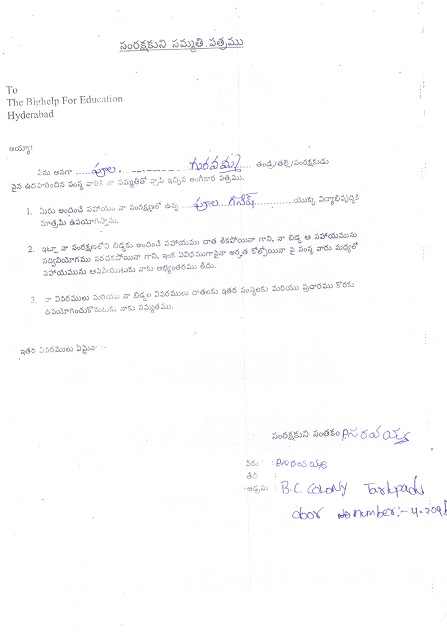 సంరక్షకుని సమ్మతి పత్రము
To
The Bighelp For Education
Hyderabad
అయ్యా!
నేను అనగా ......పూల. .- - - - - - - - గురవమ్మ ...... తండ్రి/తల్లి/సంరక్షకుడు
పైన ఉదహరించిన సంస్థ వారికి నా సమ్మతితో వ్రాసి ఇచ్చిన అంగీకార పత్రము.
1. మీరు అందించే సహాయం నా సంరక్షణలో ఉన్న .....పూల గణేష్..................యొక్క విద్యాభివృద్ధికి
మాత్రమే ఉపయోగిస్తాము.
2. ఇట్లా నా సంరక్షణలోని బిడ్డకు అందించే సహాయము దాత లేకపోయినా గాని, నా బిడ్డ ఆ సహాయమును
సద్వినియోగము పరచకపోయినా గాని, ఇంక ఏవిధముగానైనా అర్హత కోల్పోయినా పై సంస్థ వారు మధ్యలో
సహాయమును ఆపివేయుటకు నాకు అభ్యంతరము లేదు.
3. నా వివరములు మరియు నా బిడ్డల వివరములు దాతలకు ఇతర సంస్థలకు మరియు ప్రచారము కొరకు
ఉపయోగించుకొనుటకు నాకు సమ్మతము.
ఇతర వివరములు ఏమైనా :-
సంరక్షకుని సంతకం
పేరు :
తేది :
అడ్రసు : B.C. COLONY Tarlupadu
door number:- 4-209